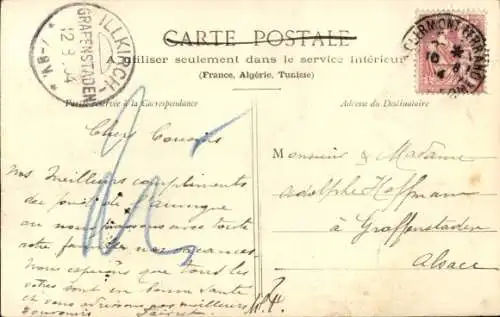 CARTE POSTALE
A utiliser seulement dans le service intérieur
(France, Algérie, Tunisie)
Partie réservée à la Correspondance
Adresse du Destinataire
ILLKIRCH-
GRAFENSTADEN
12.9.04
7-8 N
CLERMONT-FERRAND
Chers Cousins
Nos Meilleurs compliments
du fond de l'auvergne
ou nous passons avec toute
notre famille nos vacances.
Nous espérons que tous les
votres sont en bonne Santé
et vous adressons nos meilleurs
Souvenirs
Monsieur & Madame
Adolphe Hoffmann
à Graffenstaden
Alsace